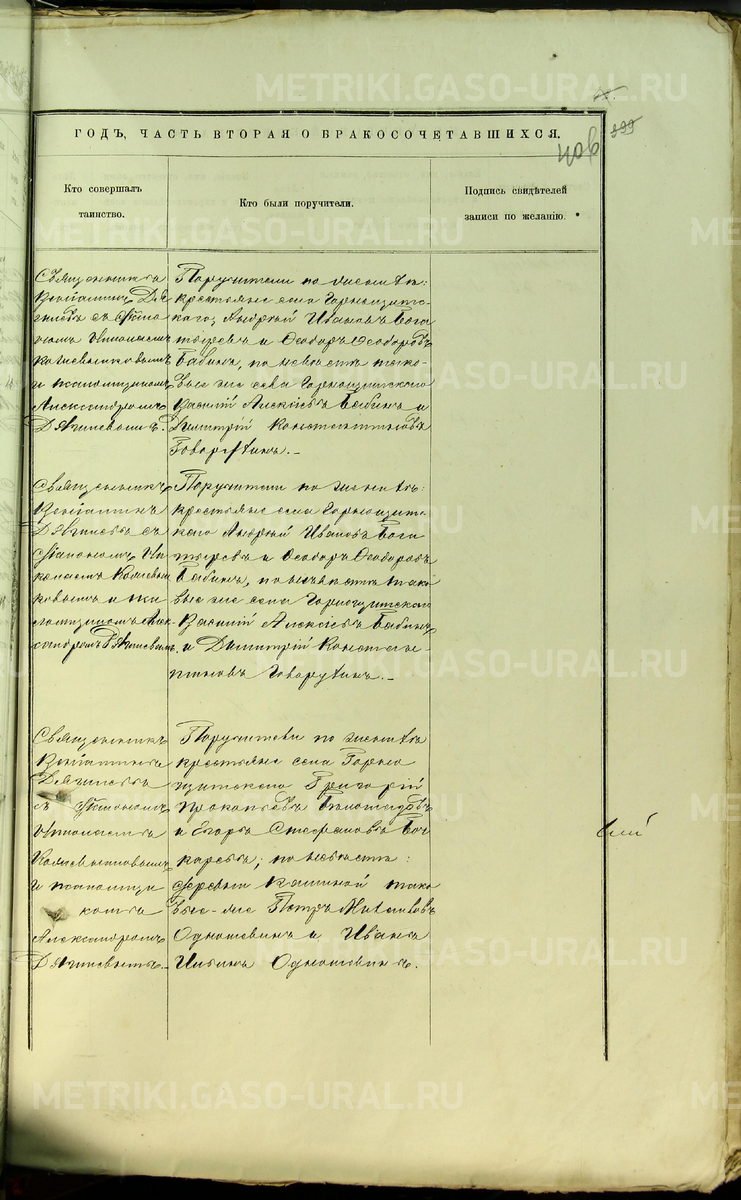 METRIKI.GASO-URAL.RU
399
406
ГОДЪ, ЧАСТЬ ВТОРАЯ О БРАКОСОЧЕТАВШИХСЯ.
Кто совершалъ
таинство.
Кто были поручители.
Подпись свидѣтелей
записи по желанію.
Священникъ
Веніаминъ
съ
Николаемъ
и псаломщикомъ
Александромъ
Дягилевымъ.
Поручители по женихѣ:
крестьяне села Горнощитс-
каго, Андрей Ивановъ Бога
тыревъ и Ѳеодоръ Ѳеодоровъ
Бабинъ, по невѣстѣ тако-
вые же села Горнощитскаго
Василій Алексѣевъ Бабинъ и
Димитрій Константиновъ
Говорухинъ.-
Священникъ
Веніаминъ
Дягилевъ съ
Діакономъ Ни
колаемъ
и пса
ломщикомъ Алек
сандромъ Дягилевымъ.
Поручители по женихѣ:
крестьяне села Горнощитс-
каго Андрей Ивановъ Бога
тыревъ и Ѳеодоръ Ѳеодоровъ
Бабинъ, по невѣстѣ тако
вые же села Горнощитскаго
Василій Алексѣевъ Бабинъ
и Димитрій Констан-
тиновъ Говорухинъ.-
Священникъ
Веніаминъ
Дягилевъ
съ Діакономъ
и псаломщи
комъ
Александромъ
Дягилевымъ.
Поручители по женихѣ
крестьяне села Горно
щитскаго Григорій
Прокопьевъ
и Егоръ Стефановъ Боч
каревъ; по невѣстѣ:
деревни Кашиной тако
вые-же Петръ Михаиловъ
Одношевинъ и Иванъ
Ильинъ Одношевинъ.